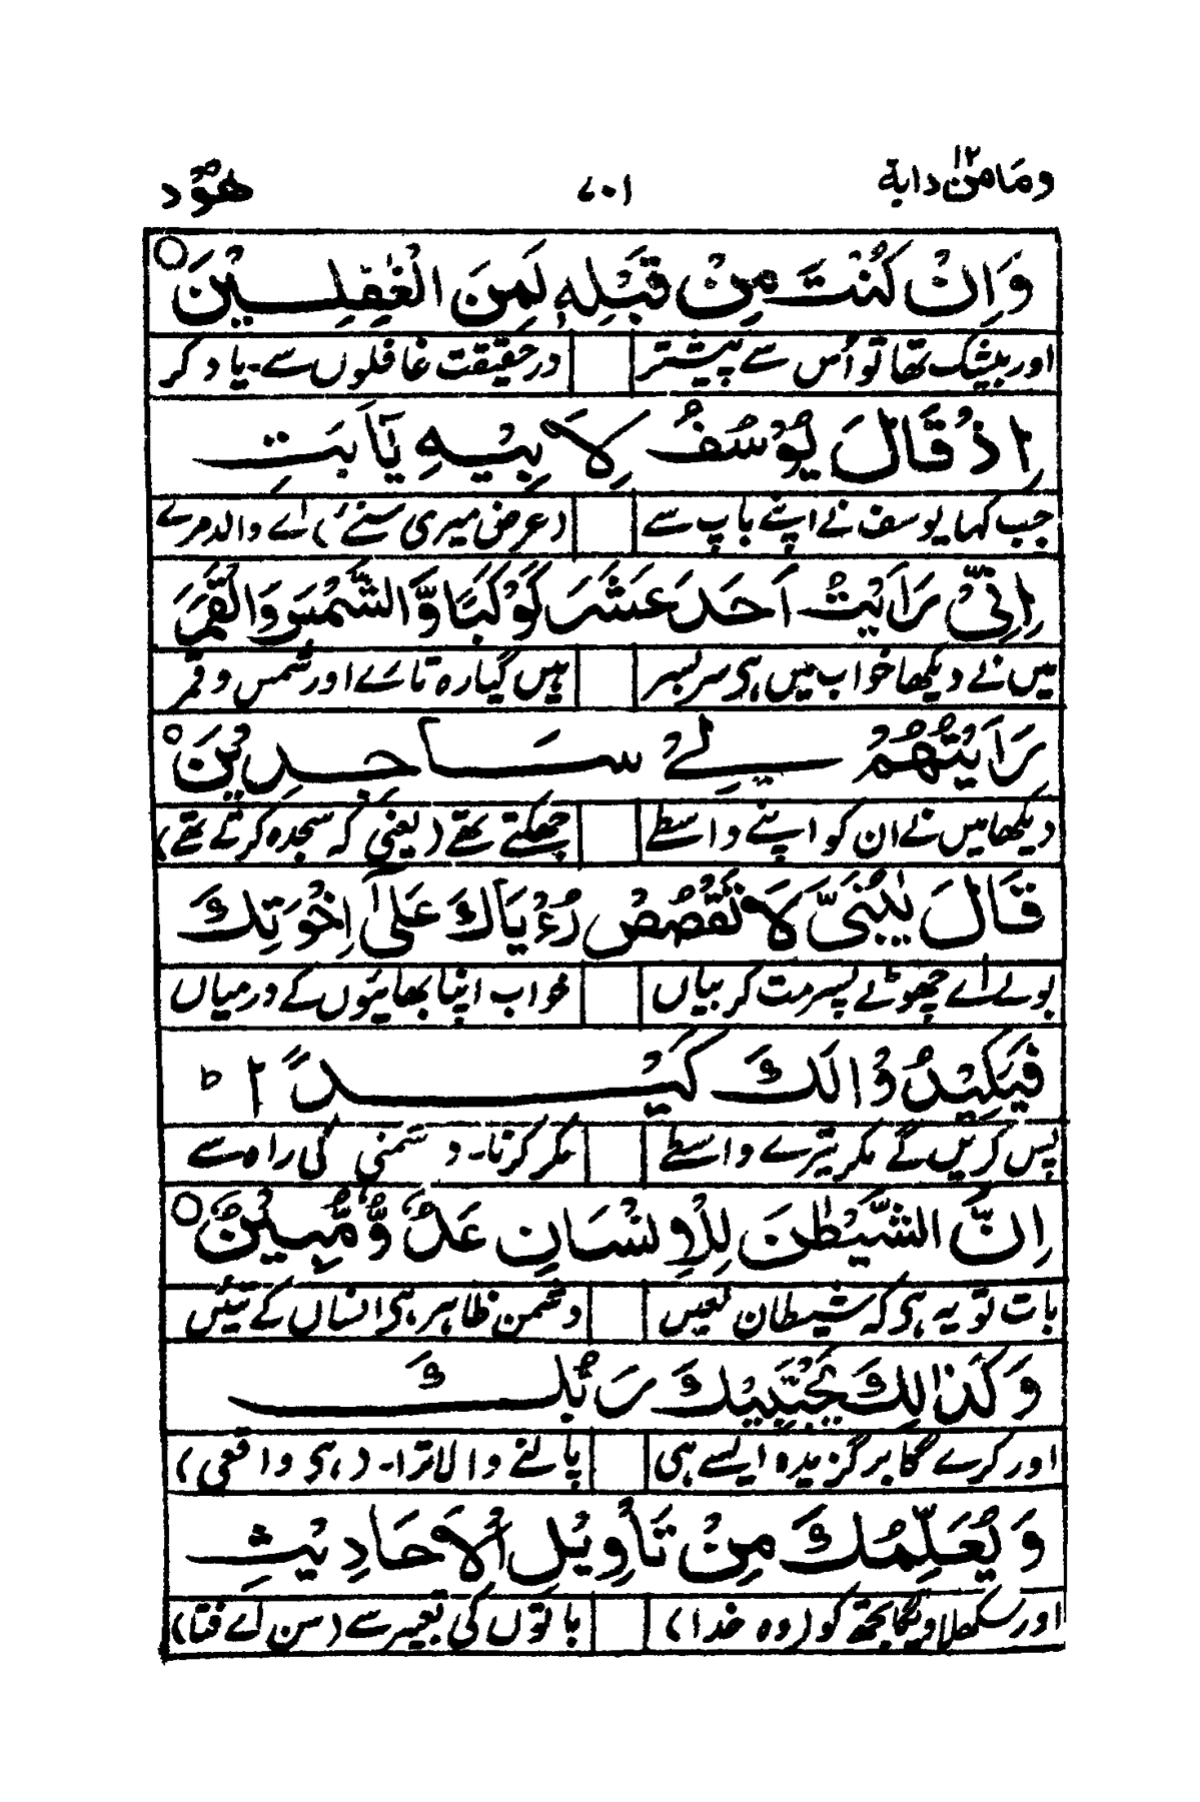 ومامن دابة ١٢ ٧٠١ هُوْد
وَاِنْ كُنْتَ مِنْ قَبْلِهٖ لَمِنَ الْغٰفِلِيْنَ ○
اور بیشک تھا تو اُس سے پیشتر درحقیقت غافلوں سے۔ یاد کر
اِذْ قَالَ يُوْسُفُ لِاَبِيْهِ يٰٓاَبَتِ
جب کہا یوسف نے اپنے باپ سے (عرض میری سنئے) اے والد مرے
اِنِّيْ رَاَيْتُ اَحَدَ عَشَرَ كَوْكَبًا وَّالشَّمْسَ وَالْقَمَرَ
میں نے دیکھا خواب میں ہی سر بسر ہیں گیارہ تارے اور شمس و قمر
رَاَيْتُهُمْ لِيْ سَاجِدِيْنَ ○
دیکھا میں نے ان کو اپنے واسطے جھکتے تھے (یعنی کہ سجدہ کرتے تھے)
قَالَ يٰبُنَيَّ لَا تَقْصُصْ رُءْيَاكَ عَلٰٓى اِخْوَتِكَ
بولے اے چھوٹے پسر مت کر بیاں خواب اپنا بھائیوں کے درمیاں
فَيَكِيْدُوْا لَكَ كَيْدًا ؕ
پس کریں گے مکر تیرے واسطے مکر کرنا۔ دشمنی کی راہ سے
اِنَّ الشَّيْطٰنَ لِلْاِنْسَانِ عَدُوٌّ مُّبِيْنٌ ○
بات تو یہ ہی کہ شیطان لعیں دشمن ظاہر ہی انساں کے تئیں
وَكَذٰلِكَ يَجْتَبِيْكَ رَبُّكَ
اور کرے گا برگزیدہ ایسے ہی پالنے والا ترا۔ (ہی واقعی)
وَيُعَلِّمُكَ مِنْ تَاْوِيْلِ الْاَحَادِيْثِ
اور سکھلا ویگا تجھ کو (وہ خدا) باتوں کی تعبیر سے (سن اے فتا)